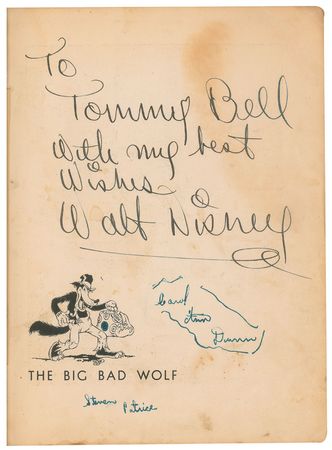 To
Tommy Bell
With my best
Wishes
Walt Disney
Carol
Ann
Dunn
THE BIG BAD WOLF
Steven Patrick